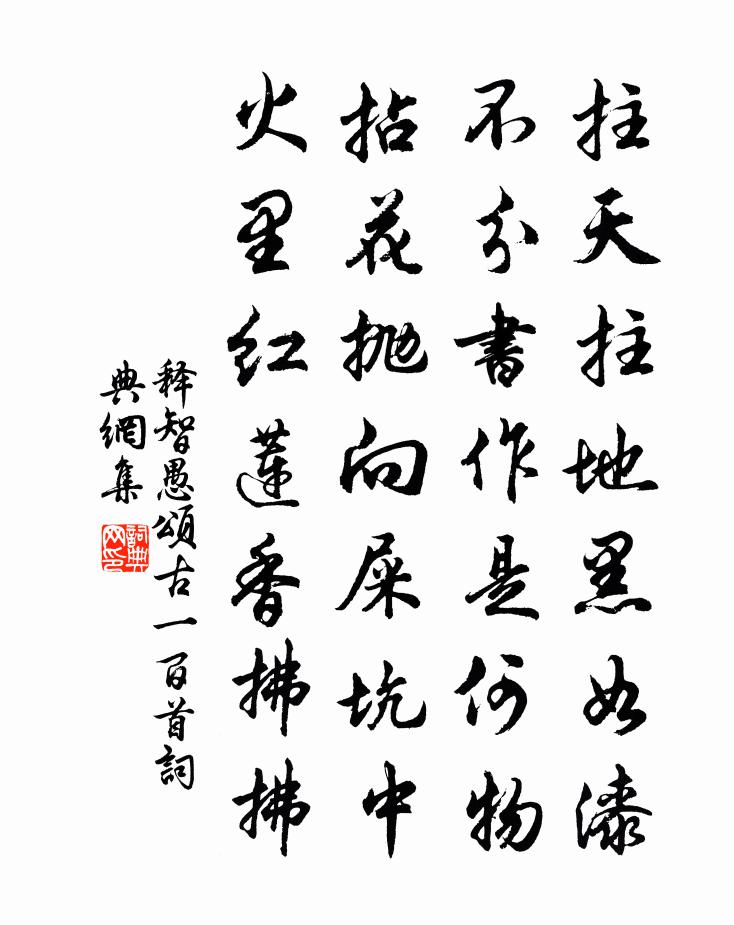 拄天拄地黑如漆
不分書作是何物
拈花抛向屎坑中
火里红蓮香拂拂
释智愚頌古一百首詞
典網集
詞典网印